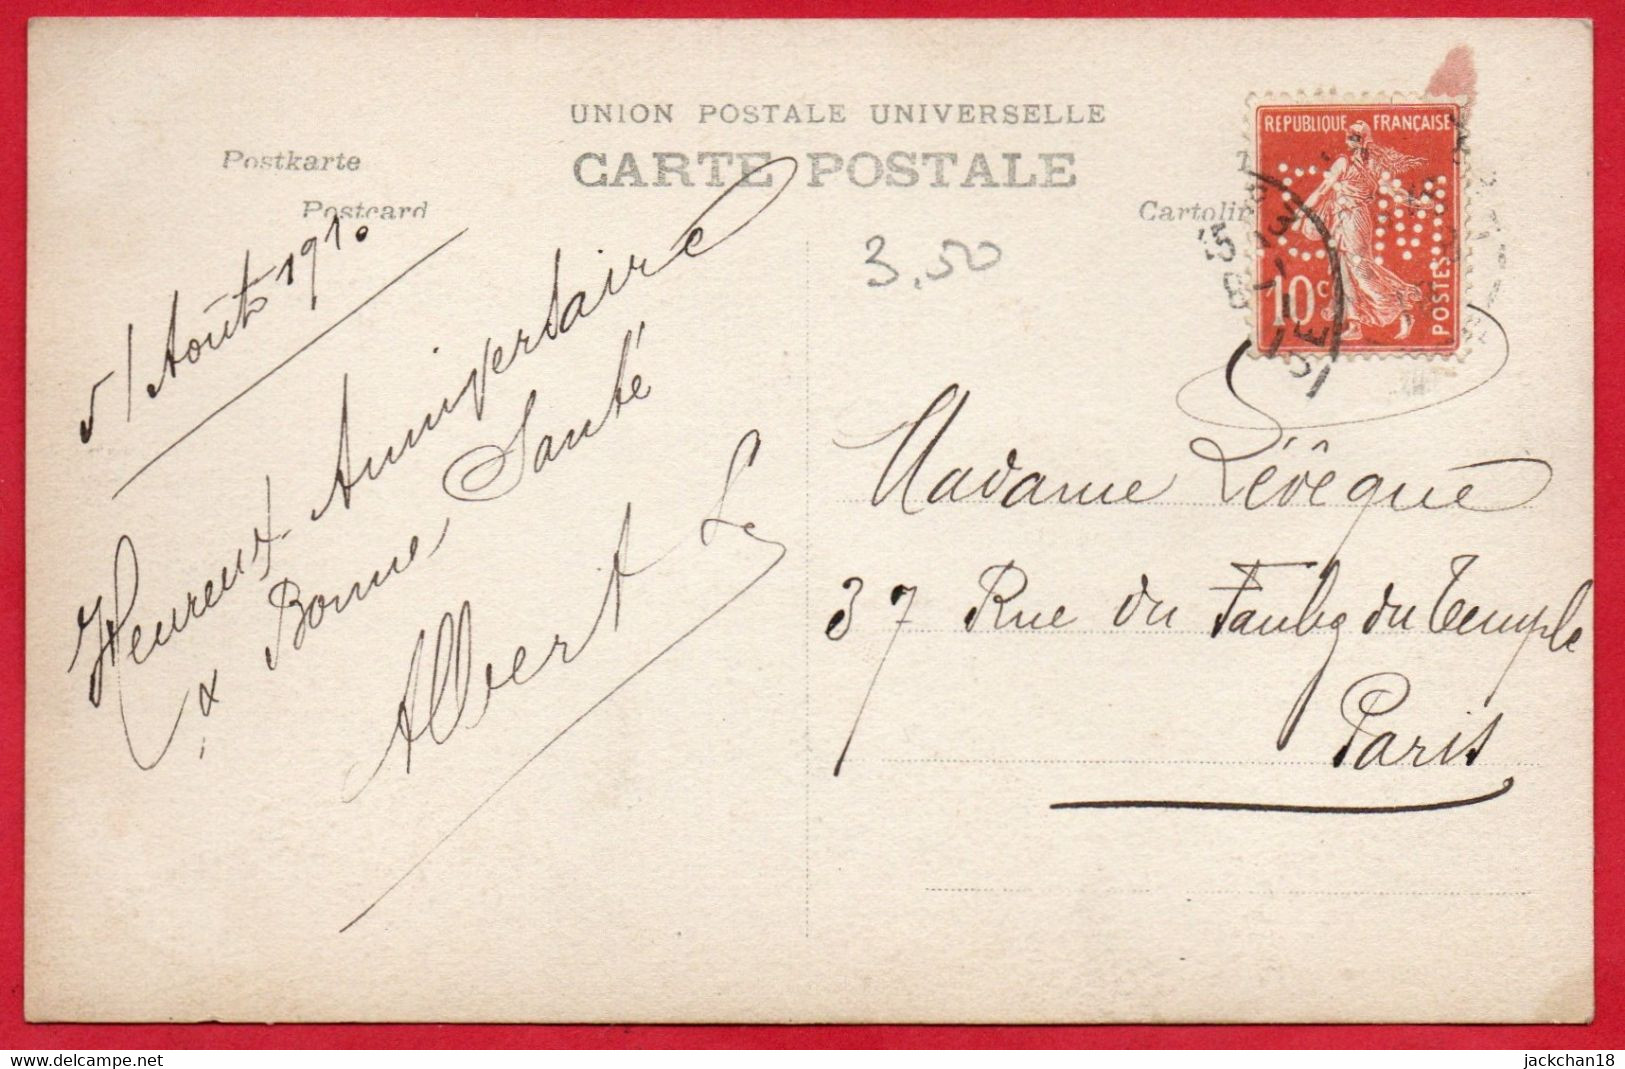 UNION POSTALE UNIVERSELLE
Postkarte
CARTE POSTALE
Postcard
Cartolin
REPUBLIQUE FRANÇAISE
10c
POSTES
3,50
5/Août 1910
Heureux Anniversaire
& Bonne Santé
Albert L
Madame Lévêque
37 Rue du Faubg du Temple
Paris
jackchan18